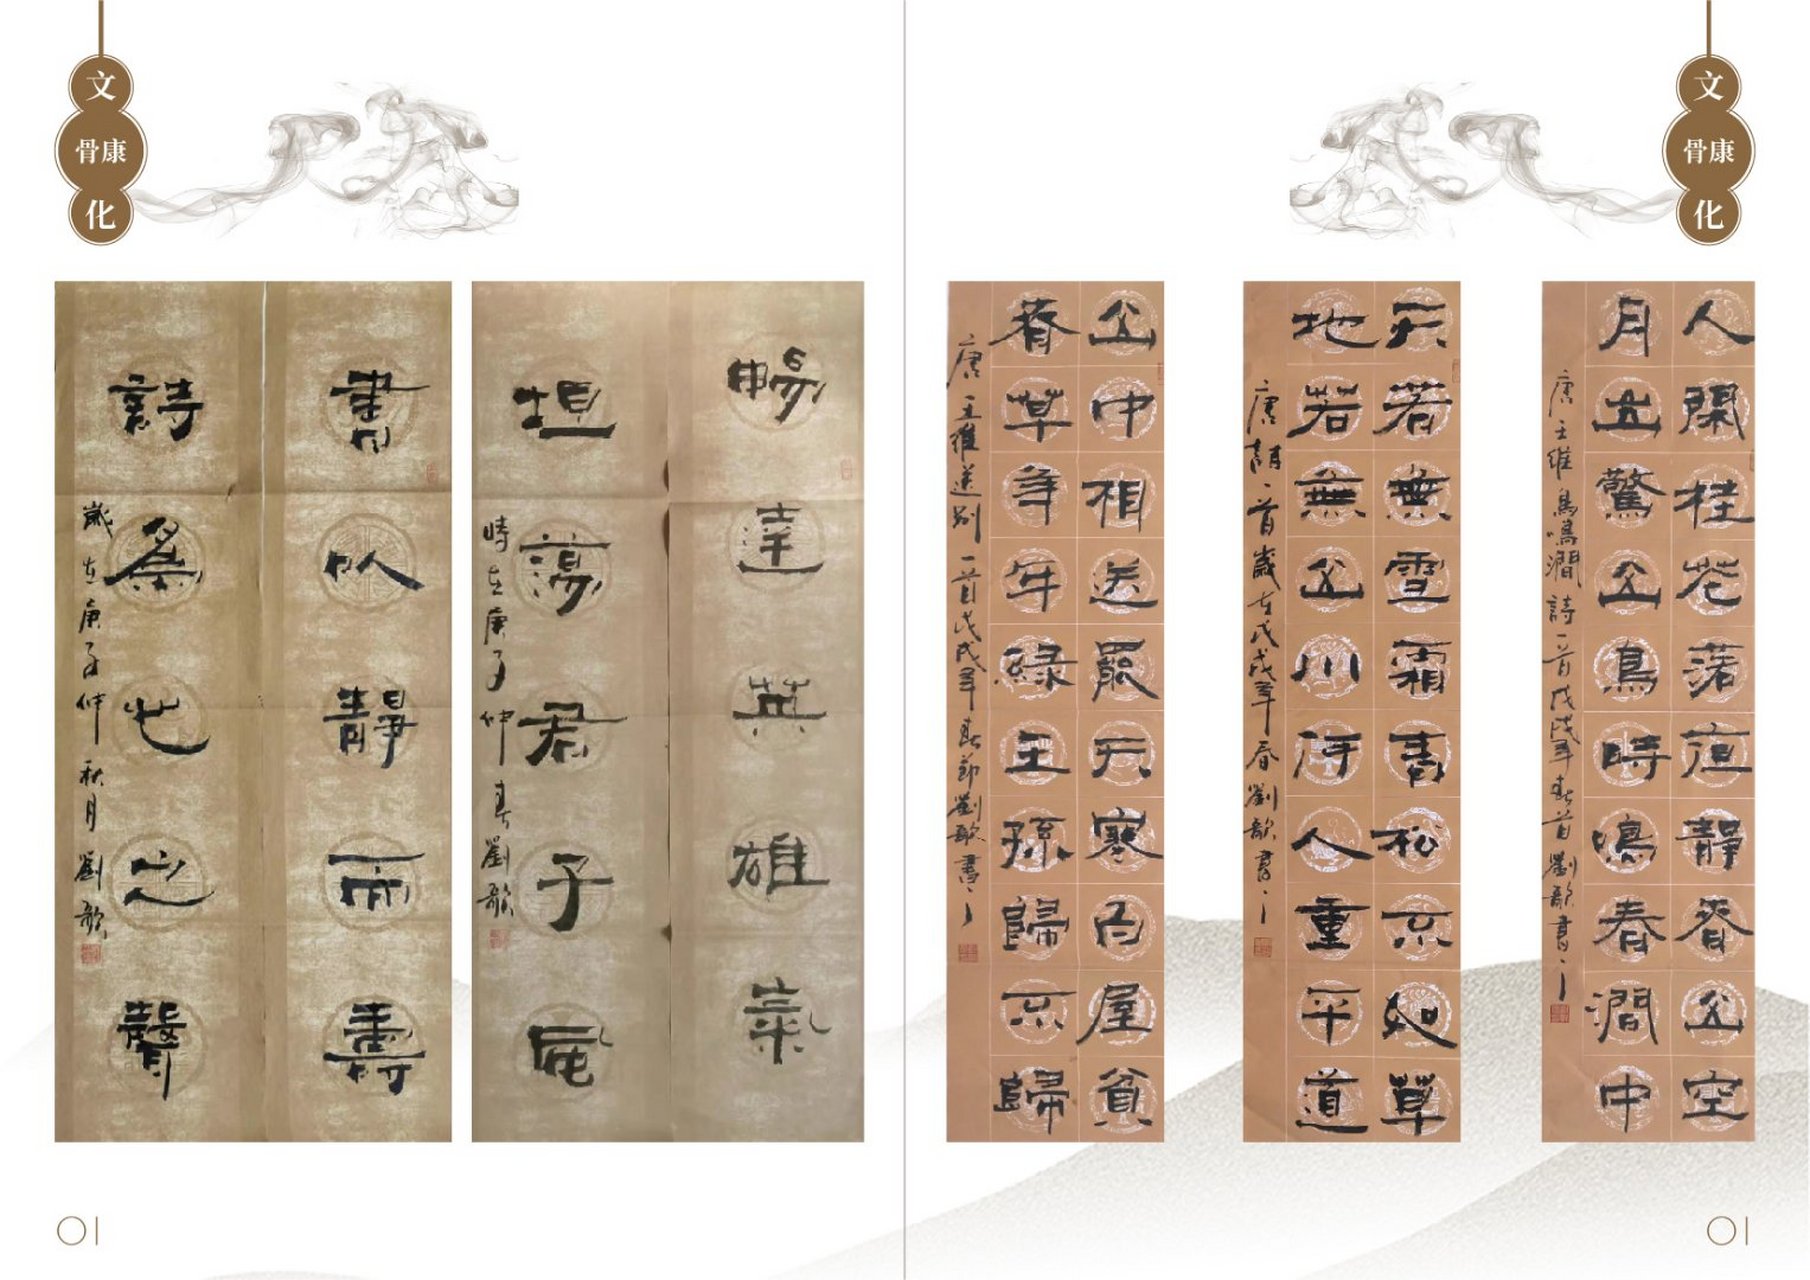 文
骨康
化
書以靜而壽
詩爲心之聲
歲在庚子仲秋月劉歌
暢達英雄氣
坦蕩君子風
時在庚子仲春劉歌
01
文
骨康
化
山中相送罷天寒白屋貧
春草年年綠王孫歸不歸
唐王維送別一首戊戌年春節劉歌書
天若無雪霜青松不如草
地若無山川何人重平道
唐一首歲在戊戌年春劉歌書
人閑桂花落夜靜春山空
月出驚山鳥時鳴春澗中
唐王維鳥鳴澗詩一首戊戌年春首劉歌書
01